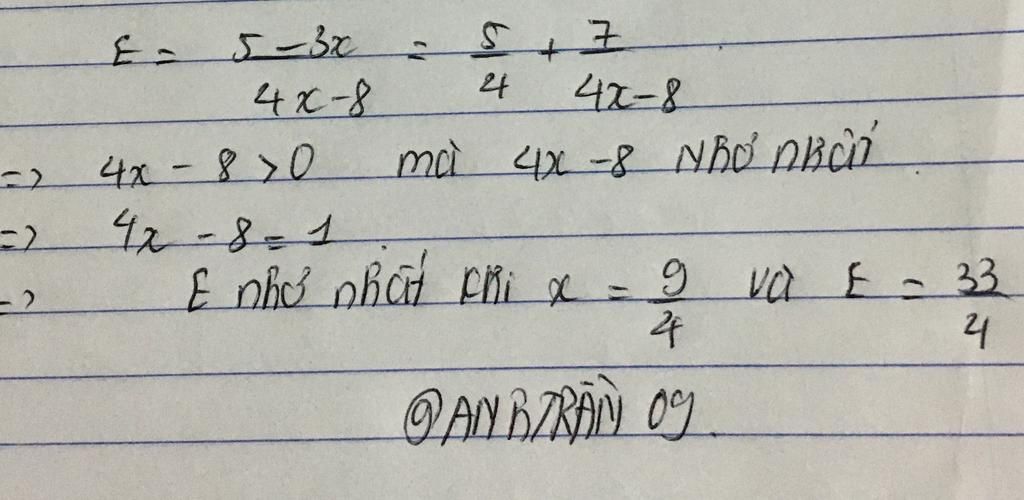 E = \frac{5-3x}{4x-8} = \frac{5}{4} + \frac{7}{4x-8}
=> 4x - 8 > 0 mà 4x - 8 nhỏ nhất.
=> 4x - 8 = 1.
=> E nhỏ nhất khi x = \frac{9}{4} và E = \frac{33}{4}
@ANHTRẦN 09.